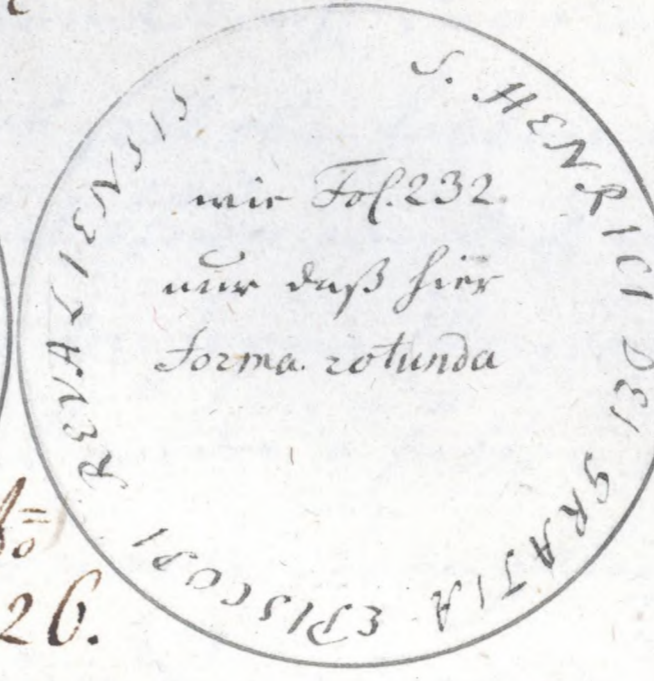 S. HENRICI DEI GRATIA EPISCOPI REVALIENSIS.
wie Fol. 232.
nur daß hier
forma rotunda
26.